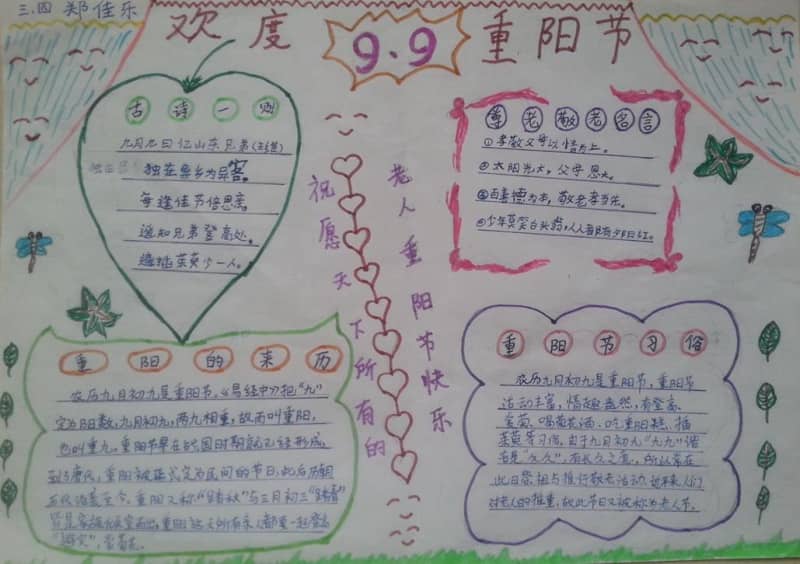 三.四 郑佳乐
欢度
9.9
重阳节
古诗一则
九月九日忆山东兄弟(王维)
独在异乡为异客。
每逢佳节倍思亲。
遥知兄弟登高处。
遍插茱萸少一人。
尊老敬老名言
①孝敬父母以情为上。
②太阳光大，父母恩大。
③百善德为本，敬老孝当先。
④少年莫笑白头翁，人人都有夕阳红。
祝愿天下所有的
老人重阳节快乐
重阳的来历
农历九月初九是重阳节，《易经中》把“九”
定为阳数，九月初九，两九相重，故而叫重阳，
也叫重九，重阳节早在战国时期就已经形成，
到了唐代，重阳被正式定为民间的节日，此后历朝
历代沿袭至今，重阳又称“踏秋”与三月初三“踏春”
皆是家族倾室而出，重阳这天所有亲人都要一起登高
重阳节习俗
农历九月初九是重阳节，重阳节
活动丰富，情趣盎然，有登高、
赏菊、喝菊花酒、吃重阳糕、插
茱萸等习俗，由于九月初九“九九”谐
音是“久久”，有长久之意，所以常在
此日祭祖与推行敬老活动，近来人们
对老人的推重，故此节日又被称为老人节。